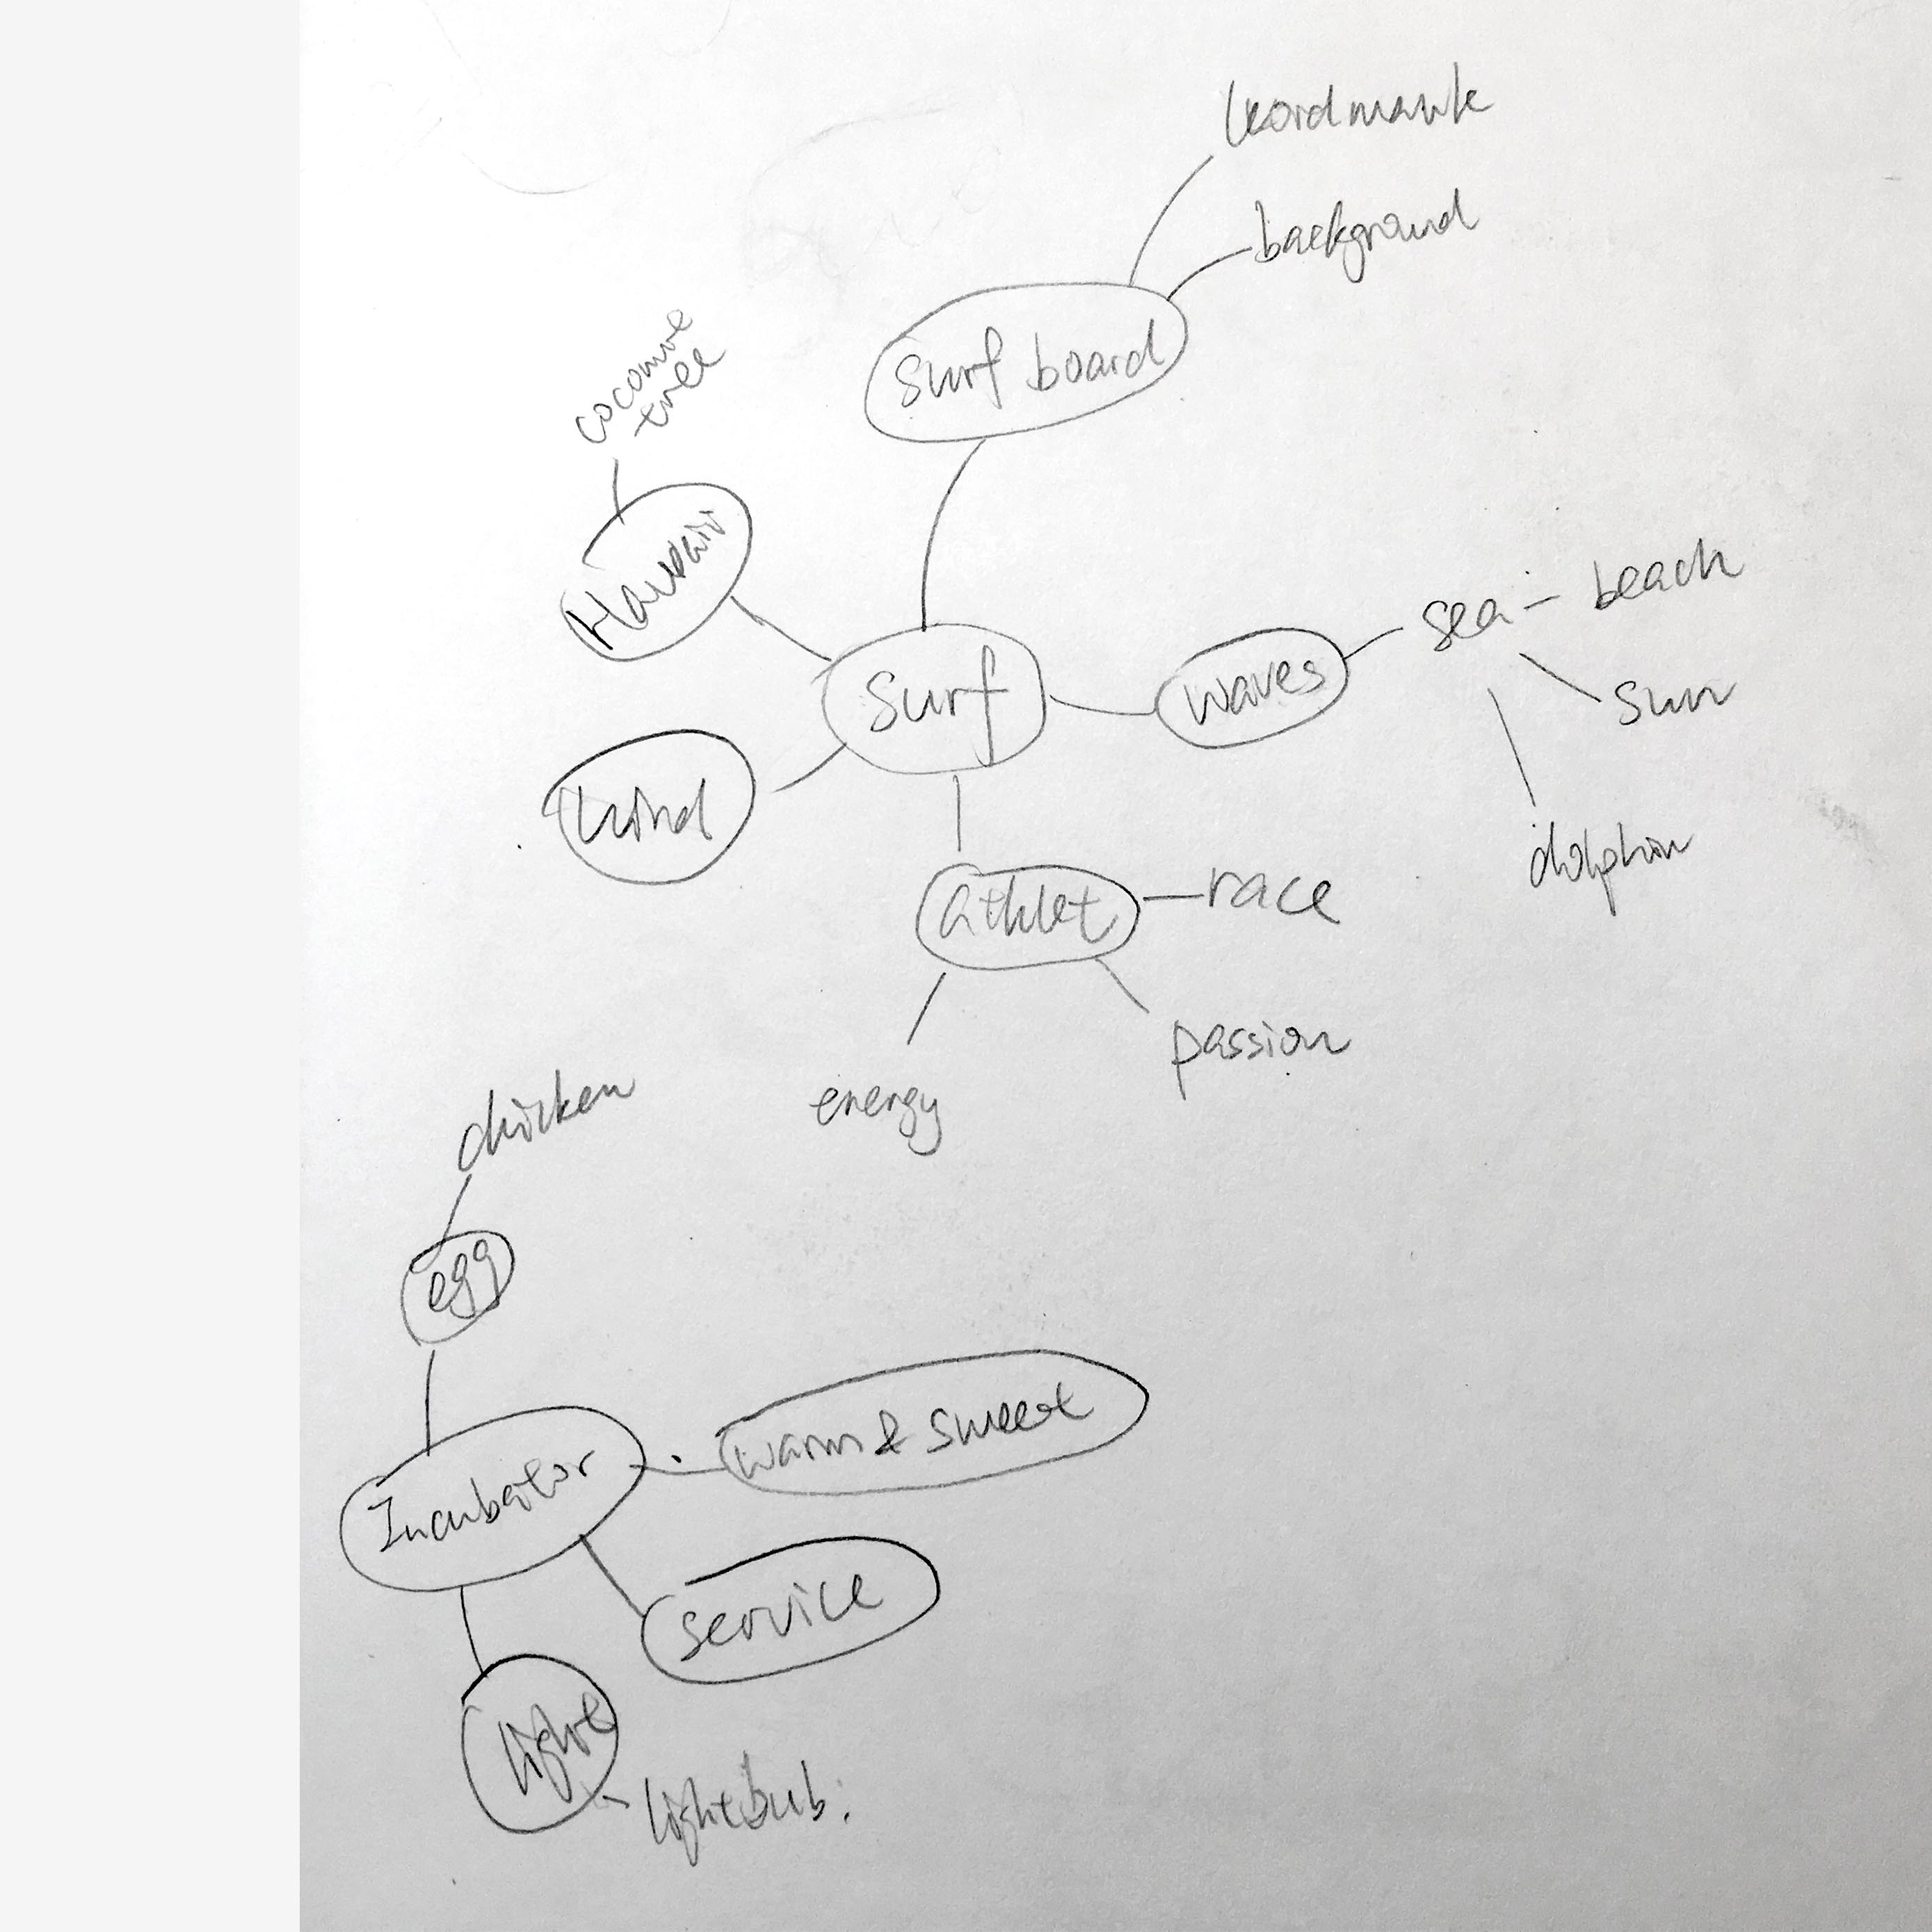 wordmark
background
surf board
tree
Hawaii
Surf
waves
sea
beach
sun
dolphin
wind
athlet
race
passion
energy
chicken
egg
Incubator
warm & sweet
service
light
lightbub.